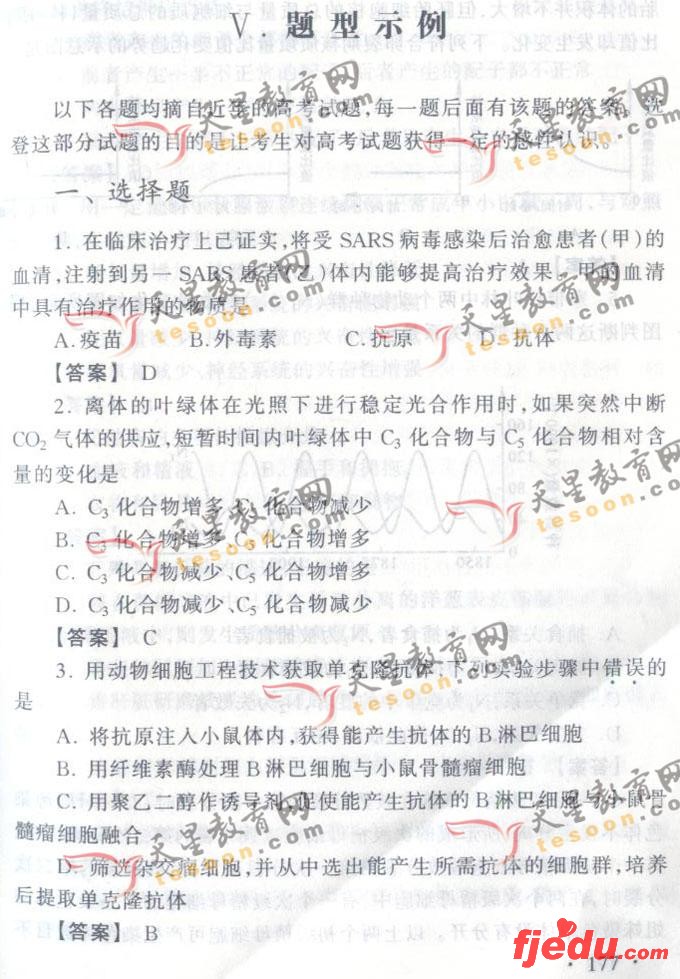 Ⅴ. 题型示例
以下各题均摘自近年的高考试题,每一题后面有该题的答案。选
登这部分试题的目的是让考生对高考试题获得一定的感性认识。
一、选择题
1. 在临床治疗上已证实,将受 SARS 病毒感染后治愈患者(甲)的
血清,注射到另一 SARS 患者(乙)体内能够提高治疗效果。甲的血清
中具有治疗作用的物质是
A. 疫苗 B. 外毒素 C. 抗原 D. 抗体
【答案】 D
2. 离体的叶绿体在光照下进行稳定光合作用时,如果突然中断
CO₂ 气体的供应,短暂时间内叶绿体中 C₃ 化合物与 C₅ 化合物相对含
量的变化是
A. C₃ 化合物增多、C₅ 化合物减少
B. C₃ 化合物增多、C₅ 化合物增多
C. C₃ 化合物减少、C₅ 化合物增多
D. C₃ 化合物减少、C₅ 化合物减少
【答案】 C
3. 用动物细胞工程技术获取单克隆抗体,下列实验步骤中错误的
是
A. 将抗原注入小鼠体内,获得能产生抗体的 B 淋巴细胞
B. 用纤维素酶处理 B 淋巴细胞与小鼠骨髓瘤细胞
C. 用聚乙二醇作诱导剂,促使能产生抗体的 B 淋巴细胞与小鼠骨
髓瘤细胞融合
D. 筛选杂交瘤细胞,并从中选出能产生所需抗体的细胞群,培养
后提取单克隆抗体
【答案】 B
· 177 ·
天星教育网
tesoon.com
天星教育网
tesoon.com
天星教育网
tesoon.com
天星教育网
tesoon.com
天星教育网
tesoon.com
天星教育网
tesoon.com
天星教育网
tesoon.com
fjedu.com